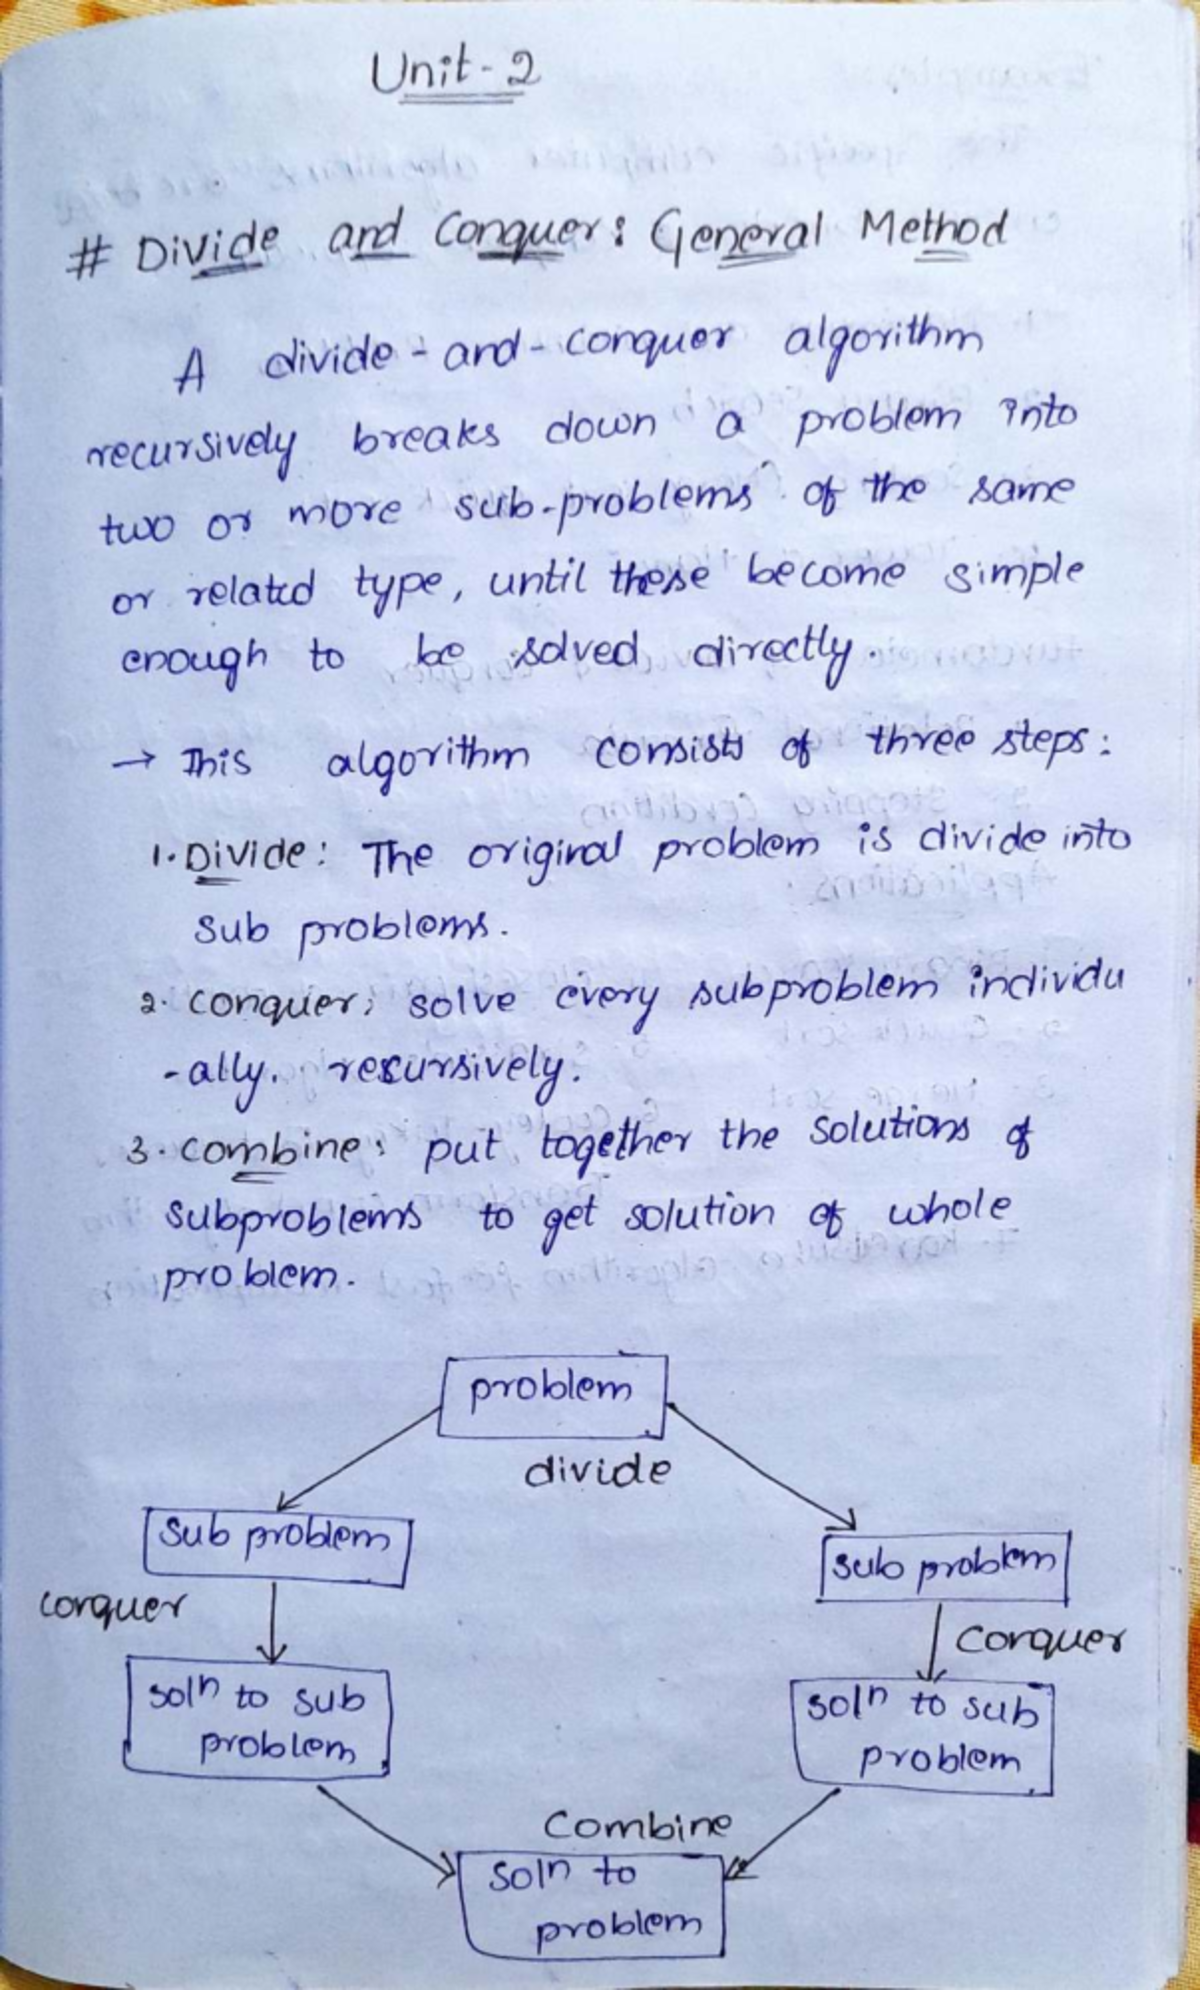 Unit-2
# Divide and Conquer: General Method
A divide-and-conquer algorithm
recursively breaks down a problem into
two or more sub-problems of the same
or related type, until these become simple
enough to be solved directly.
→ This algorithm consists of three steps:
1. Divide: The original problem is divide into
sub problems.
2. Conquer; solve every subproblem individu
-ally. recursively.
3. Combine: put together the solutions of
subproblems to get solution of whole
problem.
problem
divide
Sub problem
sub problem
conquer
Conquer
soln to sub
problem
soln to sub
problem
Combine
soln to
problem